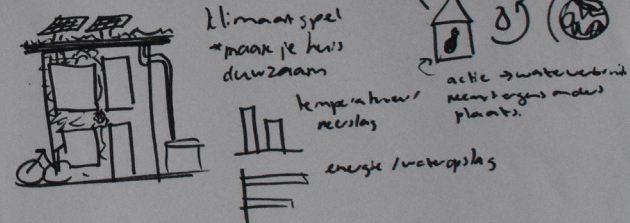 klimaatspel
*maak je huis
duurzaam
temperatuur/
neerslag
energie/wateropslag
actie → waterverbruik
neemt ergens anders
plaats.